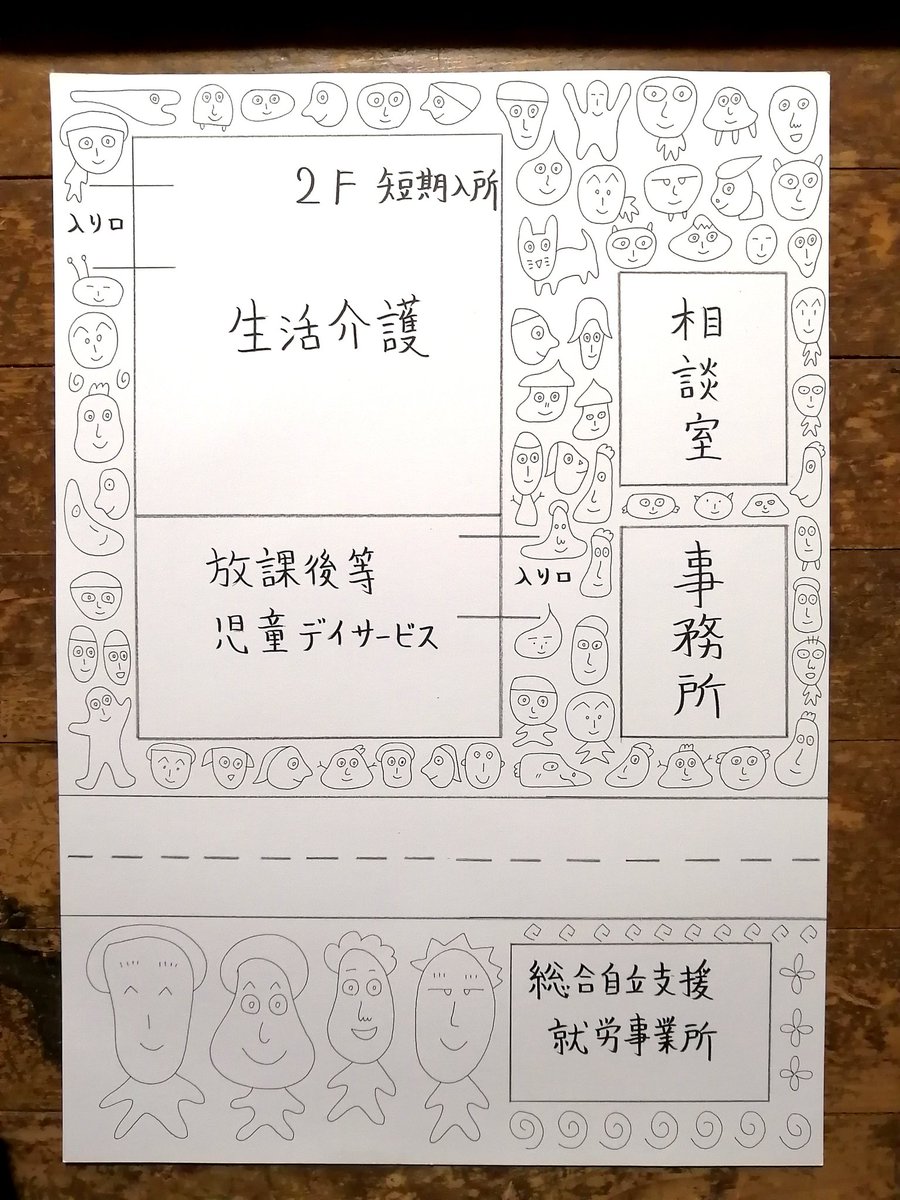 2F 短期入所
入り口
生活介護
相談室
放課後等
児童デイサービス
入り口
事務所
総合自立支援
就労事業所